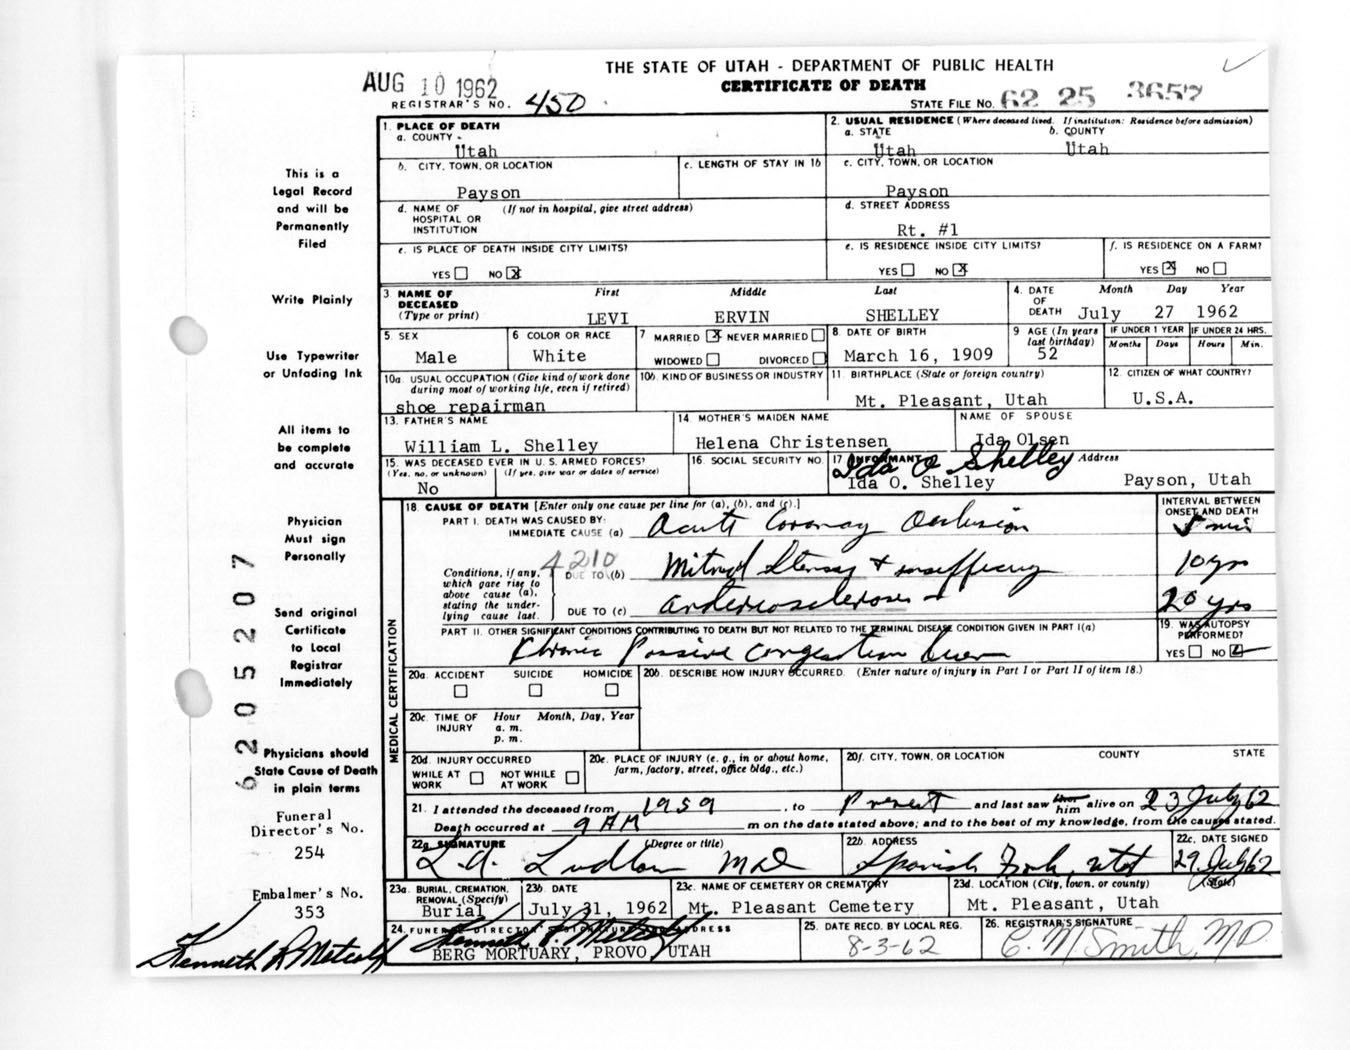 THE STATE OF UTAH - DEPARTMENT OF PUBLIC HEALTH
CERTIFICATE OF DEATH
AUG 10 1962
REGISTRAR'S NO. 450
STATE FILE NO. 62 25 3657
1. PLACE OF DEATH
a. COUNTY
Utah
2. USUAL RESIDENCE (Where deceased lived. If institution: Residence before admission)
a. STATE b. COUNTY
Utah Utah
b. CITY, TOWN, OR LOCATION
Payson
c. LENGTH OF STAY IN 1b
c. CITY, TOWN, OR LOCATION
Payson
d. NAME OF HOSPITAL OR INSTITUTION (If not in hospital, give street address)
d. STREET ADDRESS
Rt. #1
e. IS PLACE OF DEATH INSIDE CITY LIMITS?
YES NO X
e. IS RESIDENCE INSIDE CITY LIMITS?
YES NO X
f. IS RESIDENCE ON A FARM?
YES X NO
3 NAME OF DECEASED (Type or print)
First Middle Last
LEVI ERVIN SHELLEY
4. DATE OF DEATH Month Day Year
July 27 1962
5. SEX
Male
6 COLOR OR RACE
White
7 MARRIED X NEVER MARRIED
WIDOWED DIVORCED
8. DATE OF BIRTH
March 16, 1909
9 AGE (In years last birthday)
52
IF UNDER 1 YEAR IF UNDER 24 HRS.
Months Days Hours Min.
10a. USUAL OCCUPATION (Give kind of work done during most of working life, even if retired)
shoe repairman
10b. KIND OF BUSINESS OR INDUSTRY
11 BIRTHPLACE (State or foreign country)
Mt. Pleasant, Utah
12. CITIZEN OF WHAT COUNTRY?
U.S.A.
13. FATHER'S NAME
William L. Shelley
14 MOTHER'S MAIDEN NAME
Helena Christensen
NAME OF SPOUSE
Ida Olsen
15. WAS DECEASED EVER IN U. S. ARMED FORCES?
(Yes, no, or unknown) (If yes, give war or dates of service)
No
16. SOCIAL SECURITY NO.
17 INFORMANT Address
Ida O Shelley
Ida O. Shelley Payson, Utah
18. CAUSE OF DEATH [Enter only one cause per line for (a), (b), and (c).]
INTERVAL BETWEEN ONSET AND DEATH
PART I. DEATH WAS CAUSED BY:
IMMEDIATE CAUSE (a) Acute Coronary Occlusion 5 min
4210
Conditions, if any, which gave rise to above cause (a), stating the underlying cause last.
DUE TO (b) Mitral Stenosis + insufficiency 10 yrs
DUE TO (c) arteriosclerosis 20 yrs
PART II. OTHER SIGNIFICANT CONDITIONS CONTRIBUTING TO DEATH BUT NOT RELATED TO THE TERMINAL DISEASE CONDITION GIVEN IN PART I(a)
Chronic Passive Congestion liver
19. WAS AUTOPSY PERFORMED?
YES NO
MEDICAL CERTIFICATION
20a. ACCIDENT SUICIDE HOMICIDE
20b. DESCRIBE HOW INJURY OCCURRED. (Enter nature of injury in Part I or Part II of item 18.)
20c. TIME OF INJURY Hour Month, Day, Year
a. m.
p. m.
20d. INJURY OCCURRED
WHILE AT WORK NOT WHILE AT WORK
20e. PLACE OF INJURY (e. g., in or about home, farm, factory, street, office bldg., etc.)
20f. CITY, TOWN, OR LOCATION COUNTY STATE
21. I attended the deceased from 1959, to Present and last saw her him alive on 23 July 62
Death occurred at 9 AM m on the date stated above; and to the best of my knowledge, from the causes stated.
22a. SIGNATURE (Degree or title)
L. A. Ludlow MD
22b. ADDRESS
Spanish Fork, Utah
22c. DATE SIGNED
29 July 62
23a. BURIAL, CREMATION, REMOVAL (Specify)
Burial
23b. DATE
July 31, 1962
23c. NAME OF CEMETERY OR CREMATORY
Mt. Pleasant Cemetery
23d. LOCATION (City, town, or county) (State)
Mt. Pleasant, Utah
24. FUNERAL DIRECTOR'S SIGNATURE AND ADDRESS
BERG MORTUARY, PROVO, UTAH
25. DATE RECD. BY LOCAL REG.
8-3-62
26. REGISTRAR'S SIGNATURE
C. M Smith, M.D.
This is a
Legal Record
and will be
Permanently
Filed
Write Plainly
Use Typewriter
or Unfading Ink
All items to
be complete
and accurate
Physician
Must sign
Personally
Send original
Certificate
to Local
Registrar
Immediately
Physicians should
State Cause of Death
in plain terms
Funeral
Director's No.
254
Embalmer's No.
353
Kenneth R Metcalf
6205207